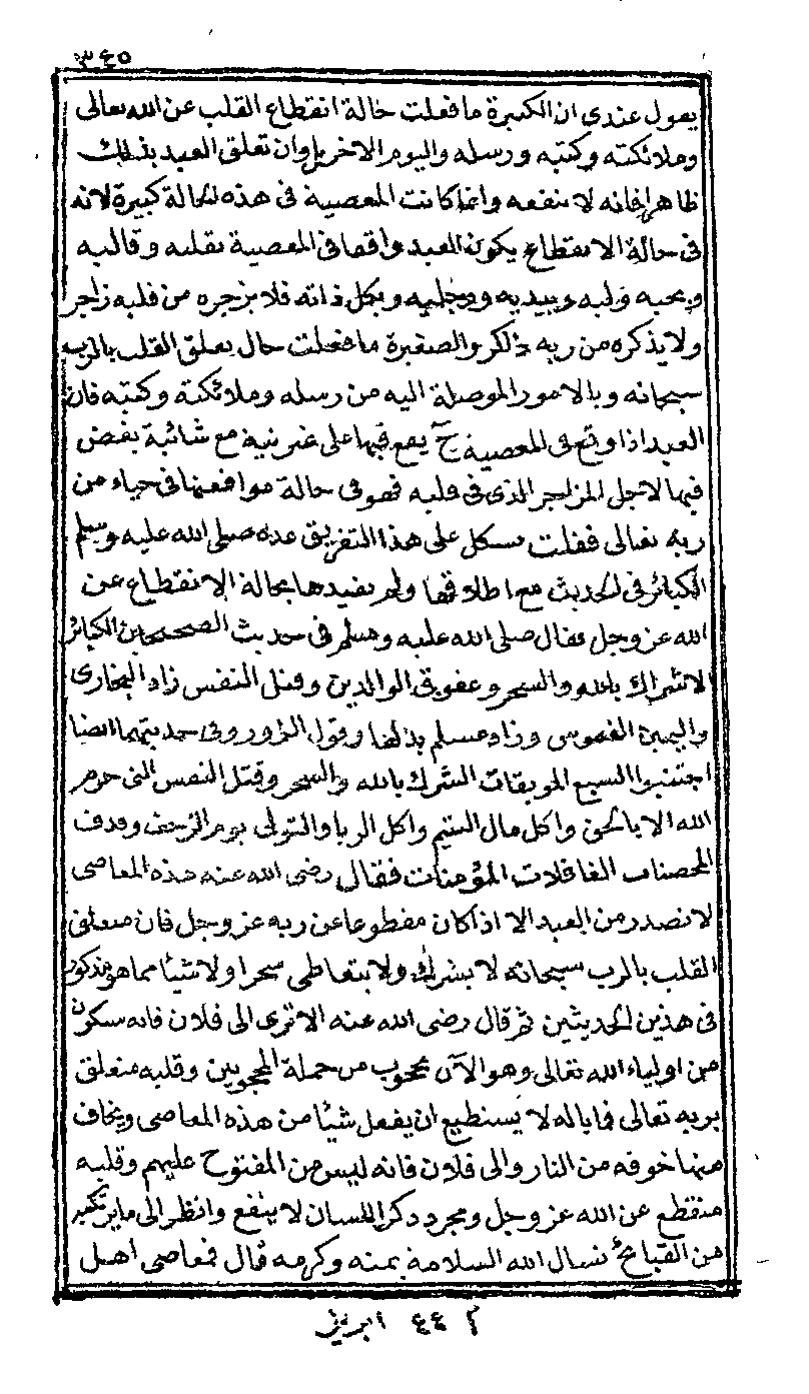 ٣٤٥
يقول عندى ان الكبيرة ما فعلت حالة انقطاع القلب عن الله تعالى
وملائكته وكتبه ورسله واليوم الاخر وان تعلق العبد بذلك
ظاهرا فانه لا ينفعه وانما كانت المعصية فى هذه الحالة كبيرة لانه
فى حالة الانقطاع يكون العبد واقعا فى المعصية بقلبه وقالبه
وبحبه ولبه وبيديه ورجليه وبكل ذاته فلا يزجره من قلبه زاجر
ولا يذكره من ربه ذاكر والصغيرة ما فعلت حال تعلق القلب بالرب
سبحانه وبالامور الموصلة اليه من رسله وملائكته وكتبه فان
العبد اذا وقع فى المعصية ح يقع فيها على غير نية مع شائبة بغض
فيها لاجل الزاجر الذى فى قلبه فهو فى حالة مواقعتها فى حياء من
ربه تعالى فقلت يشكل على هذا التفريق عده صلى الله عليه وسلم
الكبائر فى الحديث مع اطلاقها ولم يقيدها بحالة الانقطاع عن
الله عز وجل فقال صلى الله عليه وسلم فى حديث الصحيحين الكبائر
الاشراك بالله والسحر وعقوق الوالدين وقتل النفس زاد البخارى
واليمين الغموس وزاد مسلم بدلها وقول الزور وفى حديثهما ايضا
اجتنبوا السبع الموبقات الشرك بالله والسحر وقتل النفس التى حرم
الله الا بالحق واكل مال اليتيم واكل الربا والتولى يوم الزحف وقذف
المحصنات الغافلات المؤمنات فقال رضى الله عنه هذه المعاصى
لا تصدر من العبد الا اذا كان مقطوعا عن ربه عز وجل فان متعلق
القلب بالرب سبحانه لا يشرك ولا يتعاطى سحرا ولا شيئا مما هو مذكور
فى هذين الحديثين ثم قال رضى الله عنه الا ترى الى فلان فانه سيكون
من اولياء الله تعالى وهو الآن محجوب من جملة المحجوبين وقلبه متعلق
بربه تعالى فاباله لا يستطيع ان يفعل شيئا من هذه المعاصى ويخاف
منها خوفه من النار والى فلان فانه ليس من المفتوح عليهم وقلبه
منقطع عن الله عز وجل ومجرد ذكر اللسان لا ينفع وانظر الى ما يرتكبه
من القبائح نسال الله السلامة بمنه وكرمه قال فمعاصى اهل
م ٤٤ ابريز